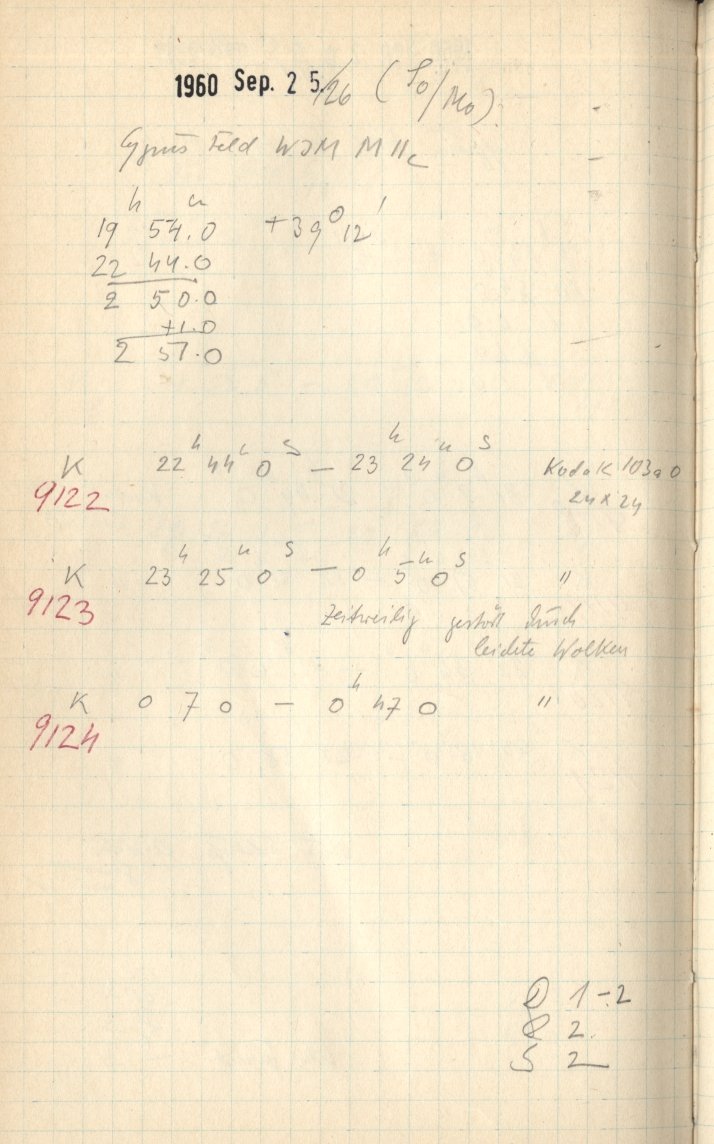 1960 Sep. 25./26 (So/Mo)
Cygnus Feld WSM M II c
h m
19 54.0 +39° 12'
22 44.0
2 50.0
+1.0
2 51.0
K 22h 44m 0s — 23h 24m 0s Kodak 103a0
9122 24 x 24
K 23h 25m 0s — 0h 5m 0s "
9123 Zeitweilig gestört durch
leichte Wolken
K 0 7 0 — 0h 47 0 "
9124
1-2
2.
S 2